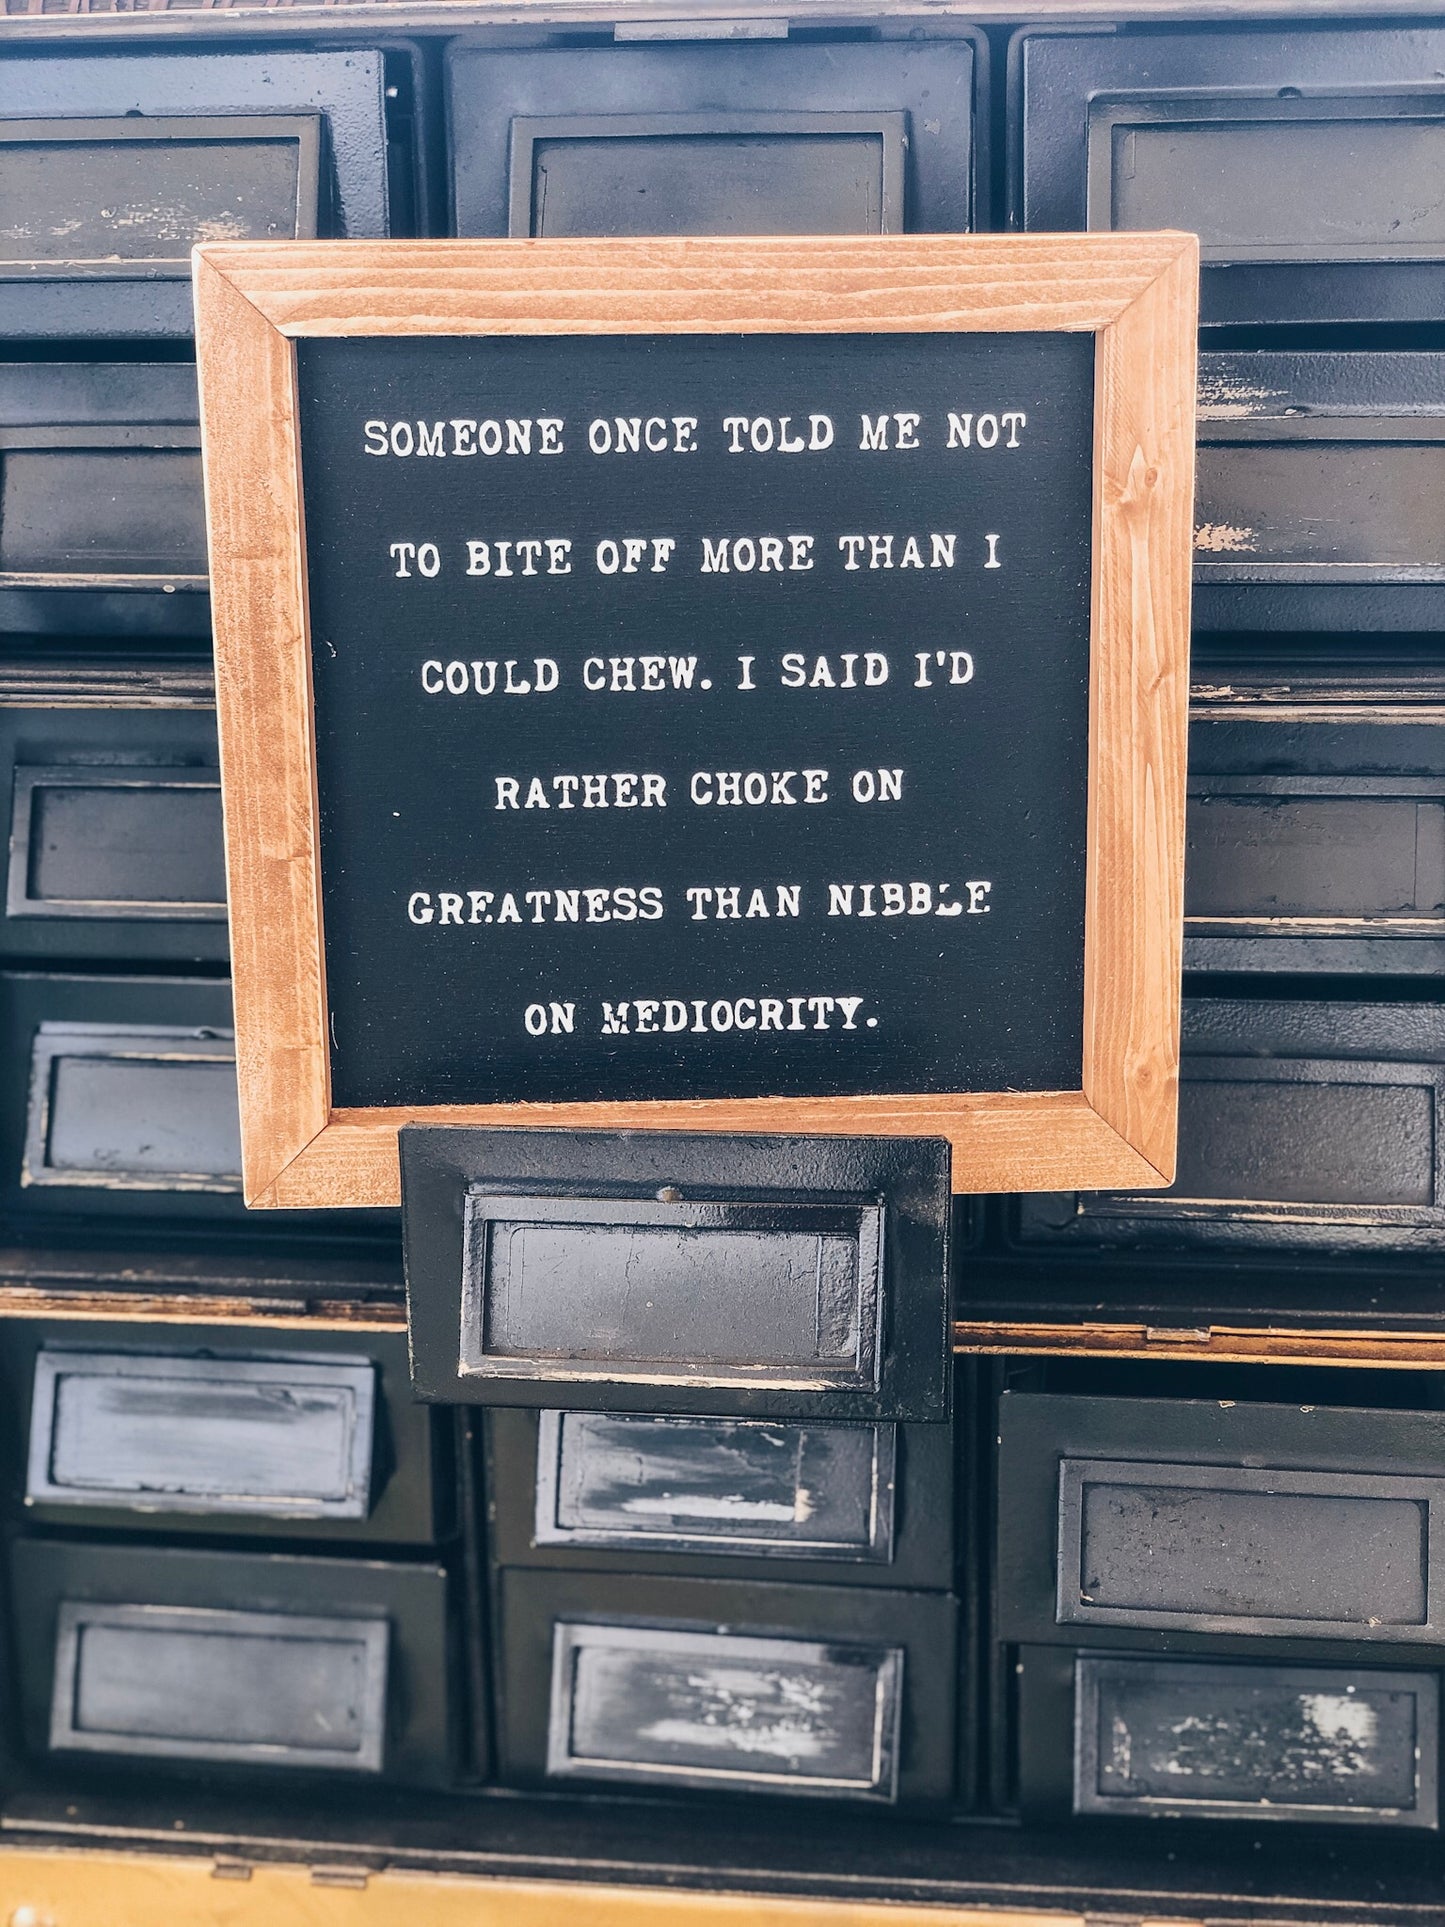 SOMEONE ONCE TOLD ME NOT
TO BITE OFF MORE THAN I
COULD CHEW. I SAID I'D
RATHER CHOKE ON
GREATNESS THAN NIBBLE
ON MEDIOCRITY.